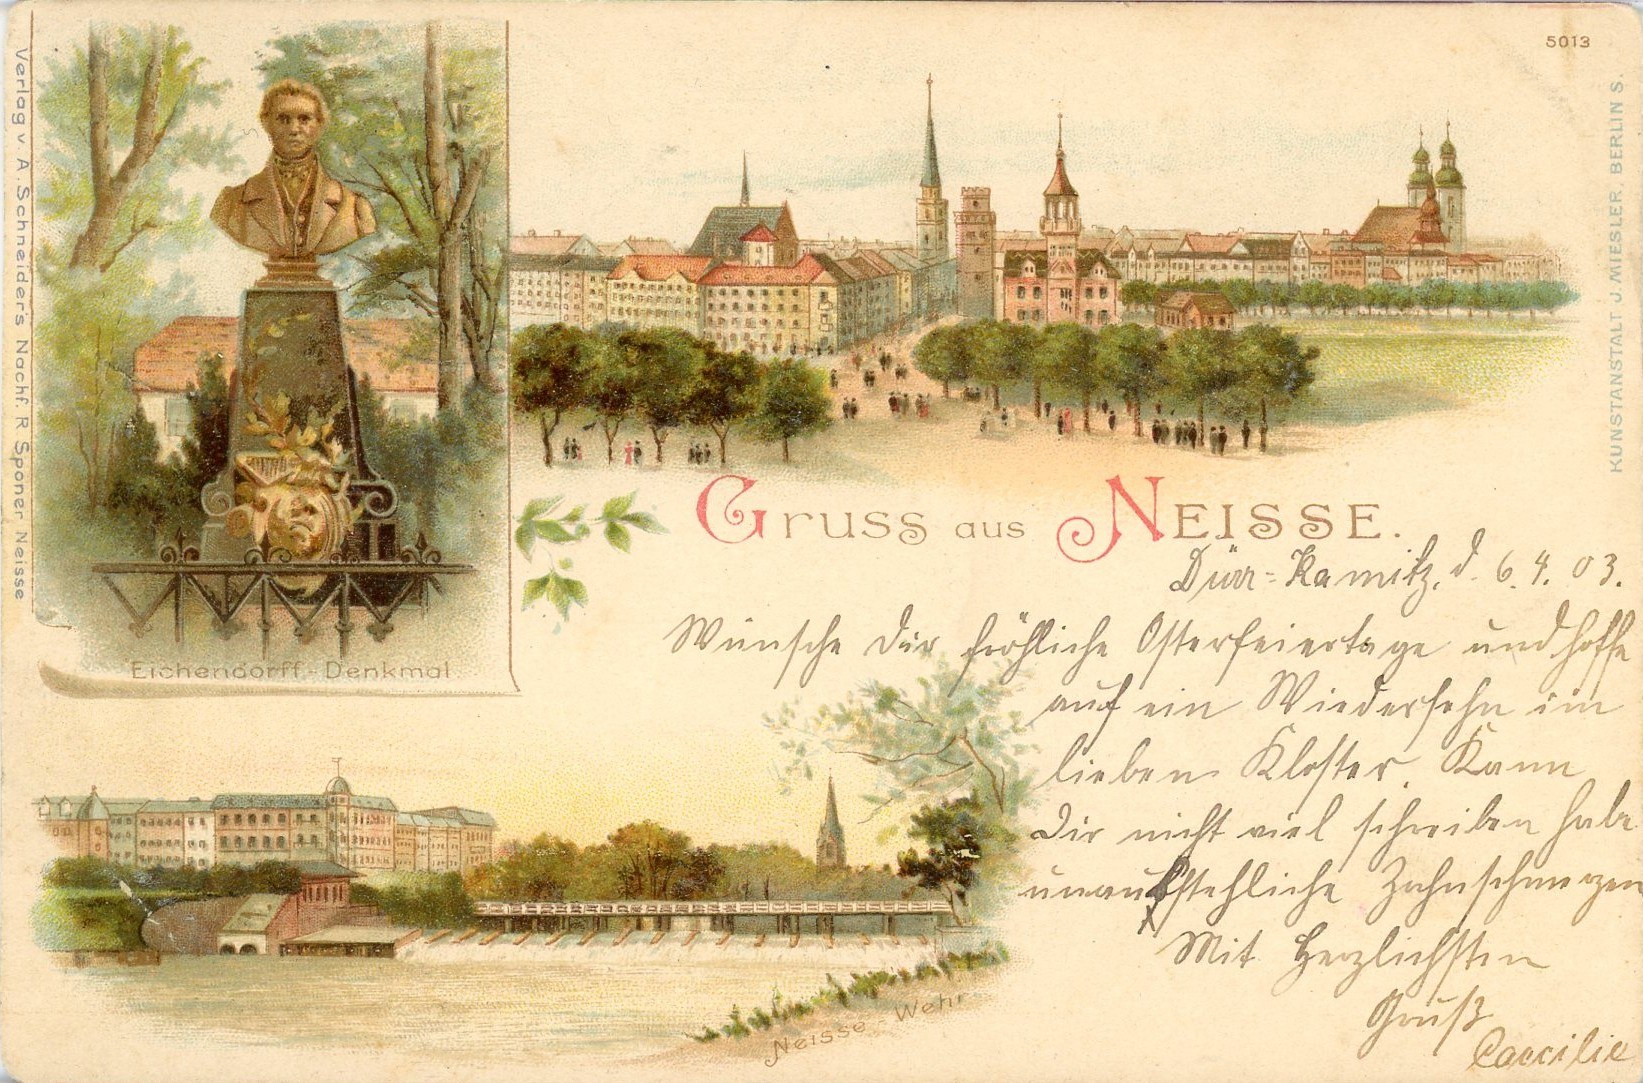 5013
Verlag v. A. Schneider's Nachf. R. Sponer Neisse
KUNSTANSTALT J. MIESLER, BERLIN S.
Eichendorff-Denkmal
GRUSS AUS NEISSE.
Dürr-Kamitz, d. 6.4.03.
Wünsche Dir fröhliche Osterfeiertage und hoffe
auf ein Wiedersehn im
lieben Kloster. Kann
Dir nicht viel schreiben habe
unausstehliche Zahnschmerzen
Mit Herzlichsten
Gruß
Caecilie
Neisse Wehr